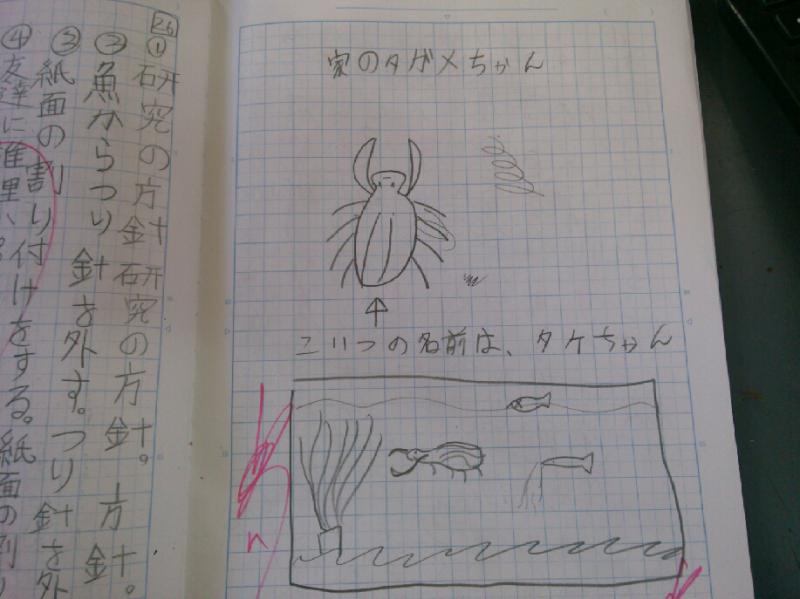 家のタガメちゃん
こいつの名前は、タケちゃん
26
①研究の方針 研究の方針。方針。
②魚からつり針を外す。つり針を外
③紙面の割り付けをする。紙面の割り
④友達に